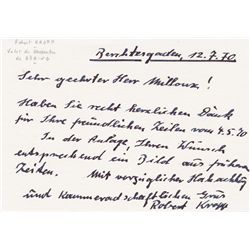 Robert KROPP
Valet de Chambre
de GÖRING
Berchtesgaden, 12.7.70.
Sehr geehrter Herr Milloux!
Haben Sie recht herzlichen Dank
für Ihre freundlichen Zeilen vom 4.5.70
In der Anlage, Ihren Wunsch
entsprechend ein Bild aus früheren
Zeiten. Mit vorzüglicher Hochachtung
und kameradschaftlichen Gruß
Robert Kropp